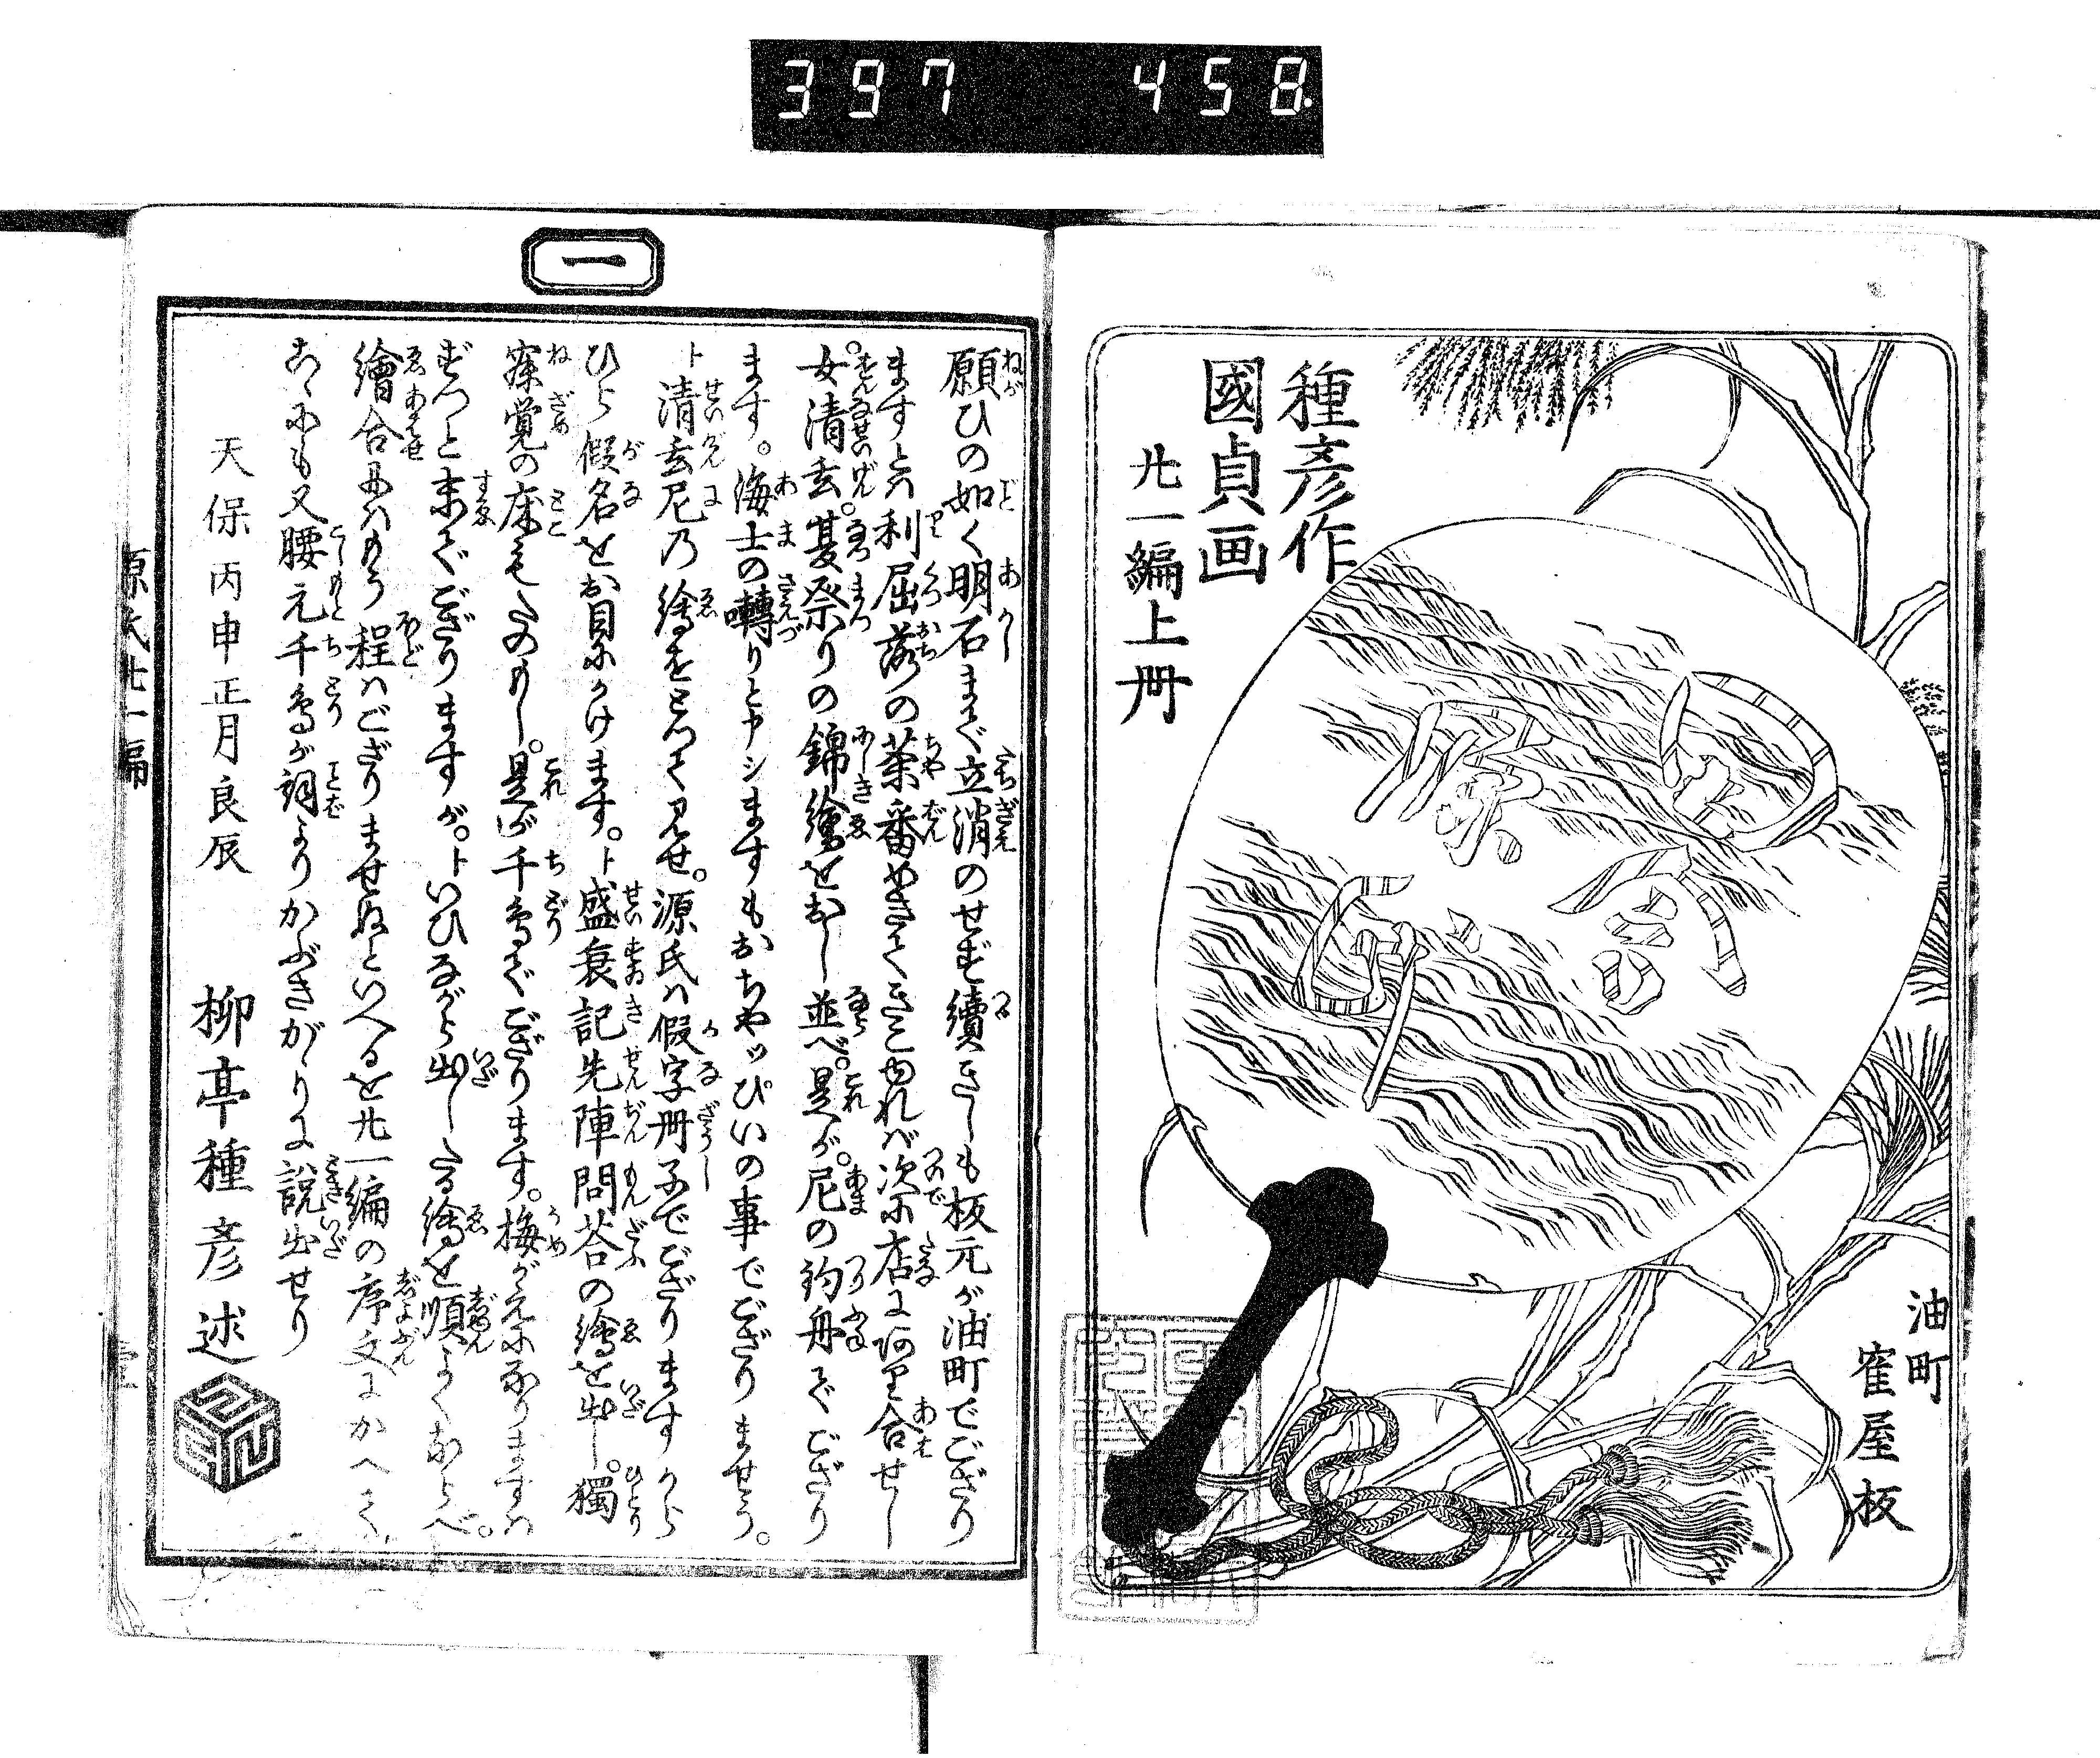 397 458
種彦作
國貞画
廿一編上冊
油町
隺屋板
一
願ひの如く明石まで立消のせず續きしも板元が油町でござり
ますとハ利屈落の茶番めきてきこゆれバ次に店に
女清玄。夏祭りの錦繪をおし並べ。是が。尼の釣舟でござり
ます。海士の囀りと申シますもおちやッぴいの事でござりませう。
ト清玄尼乃繪をとつて見せ。源氏ハ假字冊子でござりますから
ひら假名をお目にかけます。ト盛衰記先陣問荅の繪を出し。獨
寐覚の床もたのもし。是が千鳥でござります。梅がえに
ずつと末でござりますが。トいひながら出したる繪を順よくならべ。
繪合丗ハもう程ハござりませぬといへるを廿一編の序文にかへて
こゝにも又腰元千鳥が詞よりかぶきがゝりに説出せり
天保丙申正月良辰
柳亭種彦述
源氏廿一編